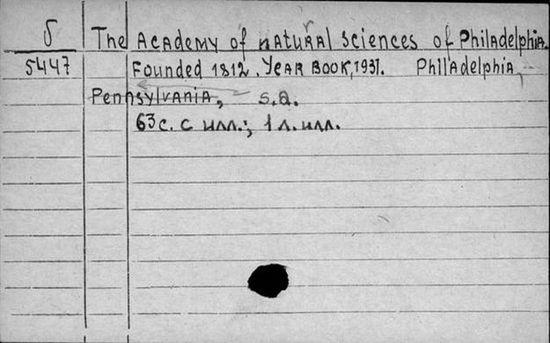 Б The Academy of Natural Sciences of Philadelphia.
5447 Founded 1812. Year Book, 1931. Philadelphia,
Pennsylvania, s.a.
63 с. с илл.; 1 л. илл.